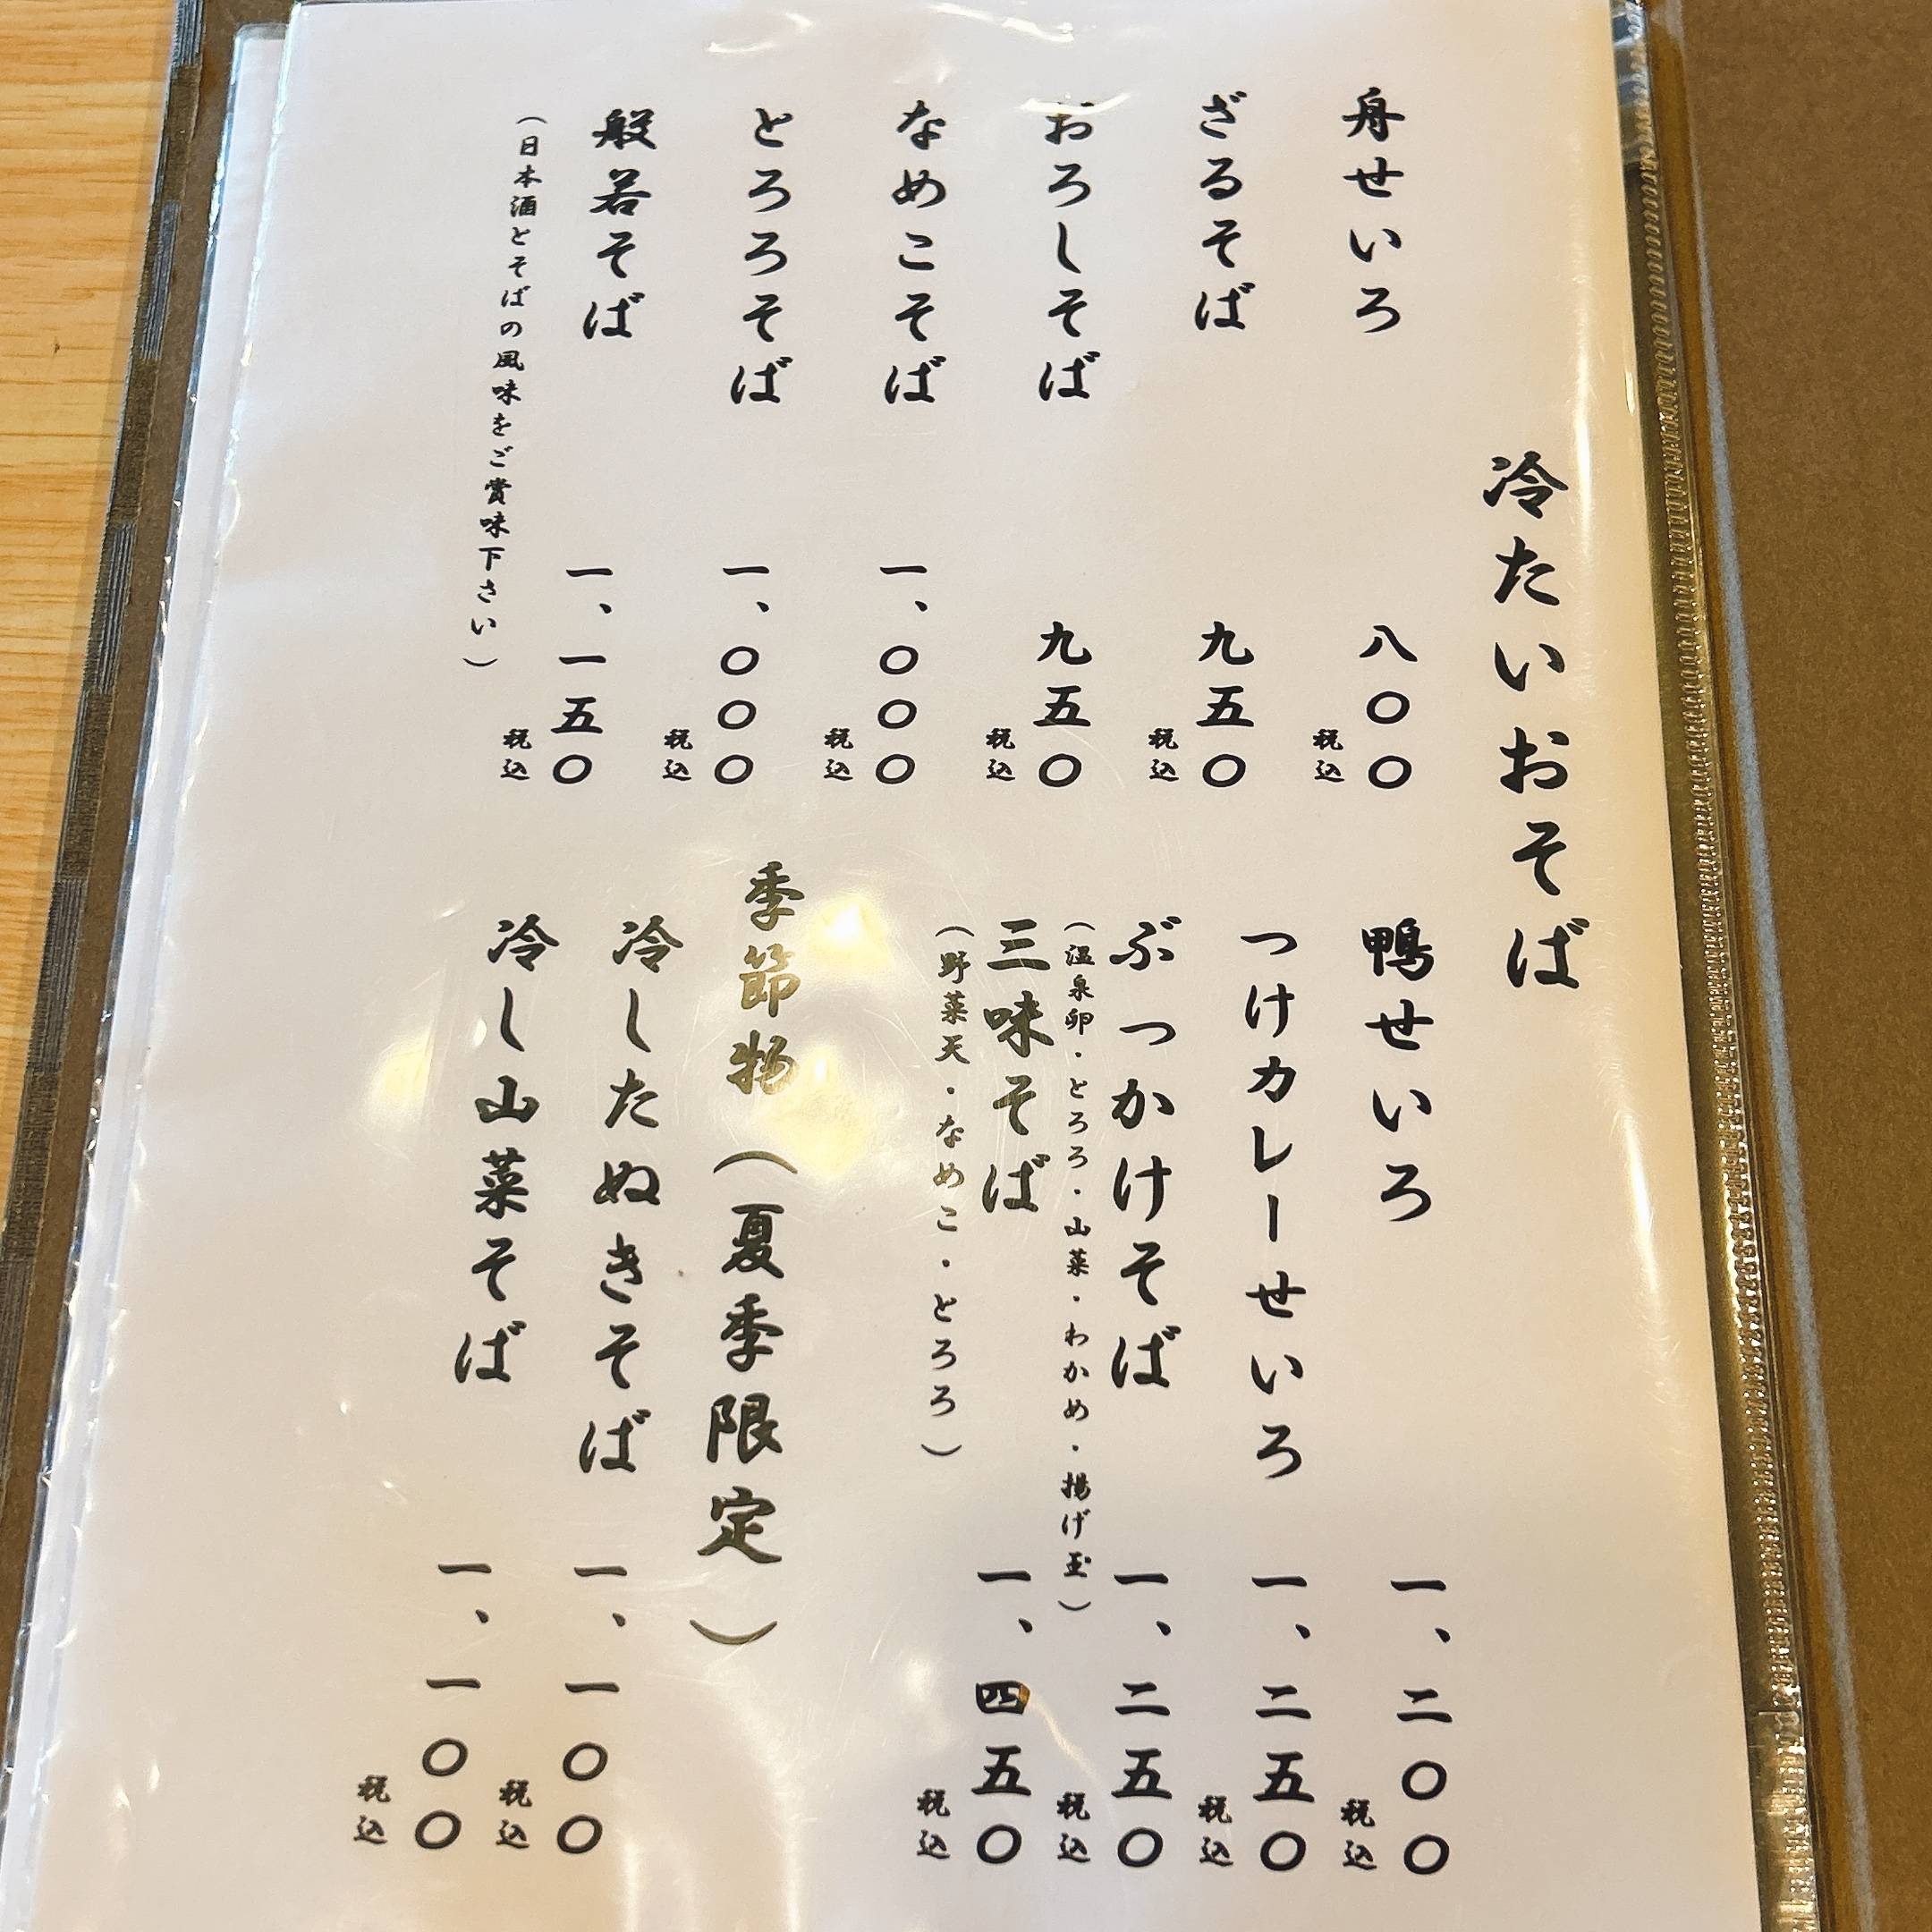 冷たいおそば
舟せいろ 八〇〇 税込
ざるそば 九五〇 税込
おろしそば 九五〇 税込
なめこそば 一、〇〇〇 税込
とろろそば 一、〇〇〇 税込
般若そば 一、一五〇 税込
（日本酒とそばの風味をご賞味下さい）
鴨せいろ 一、二〇〇 税込
つけカレーせいろ 一、二五〇 税込
ぶっかけそば 一、二五〇 税込
（温泉卵・とろろ・山菜・わかめ・揚げ玉）
三味そば 一、四五〇 税込
（野菜天・なめこ・とろろ）
季節物（夏季限定）
冷したぬきそば 一、一〇〇 税込
冷し山菜そば 一、一〇〇 税込